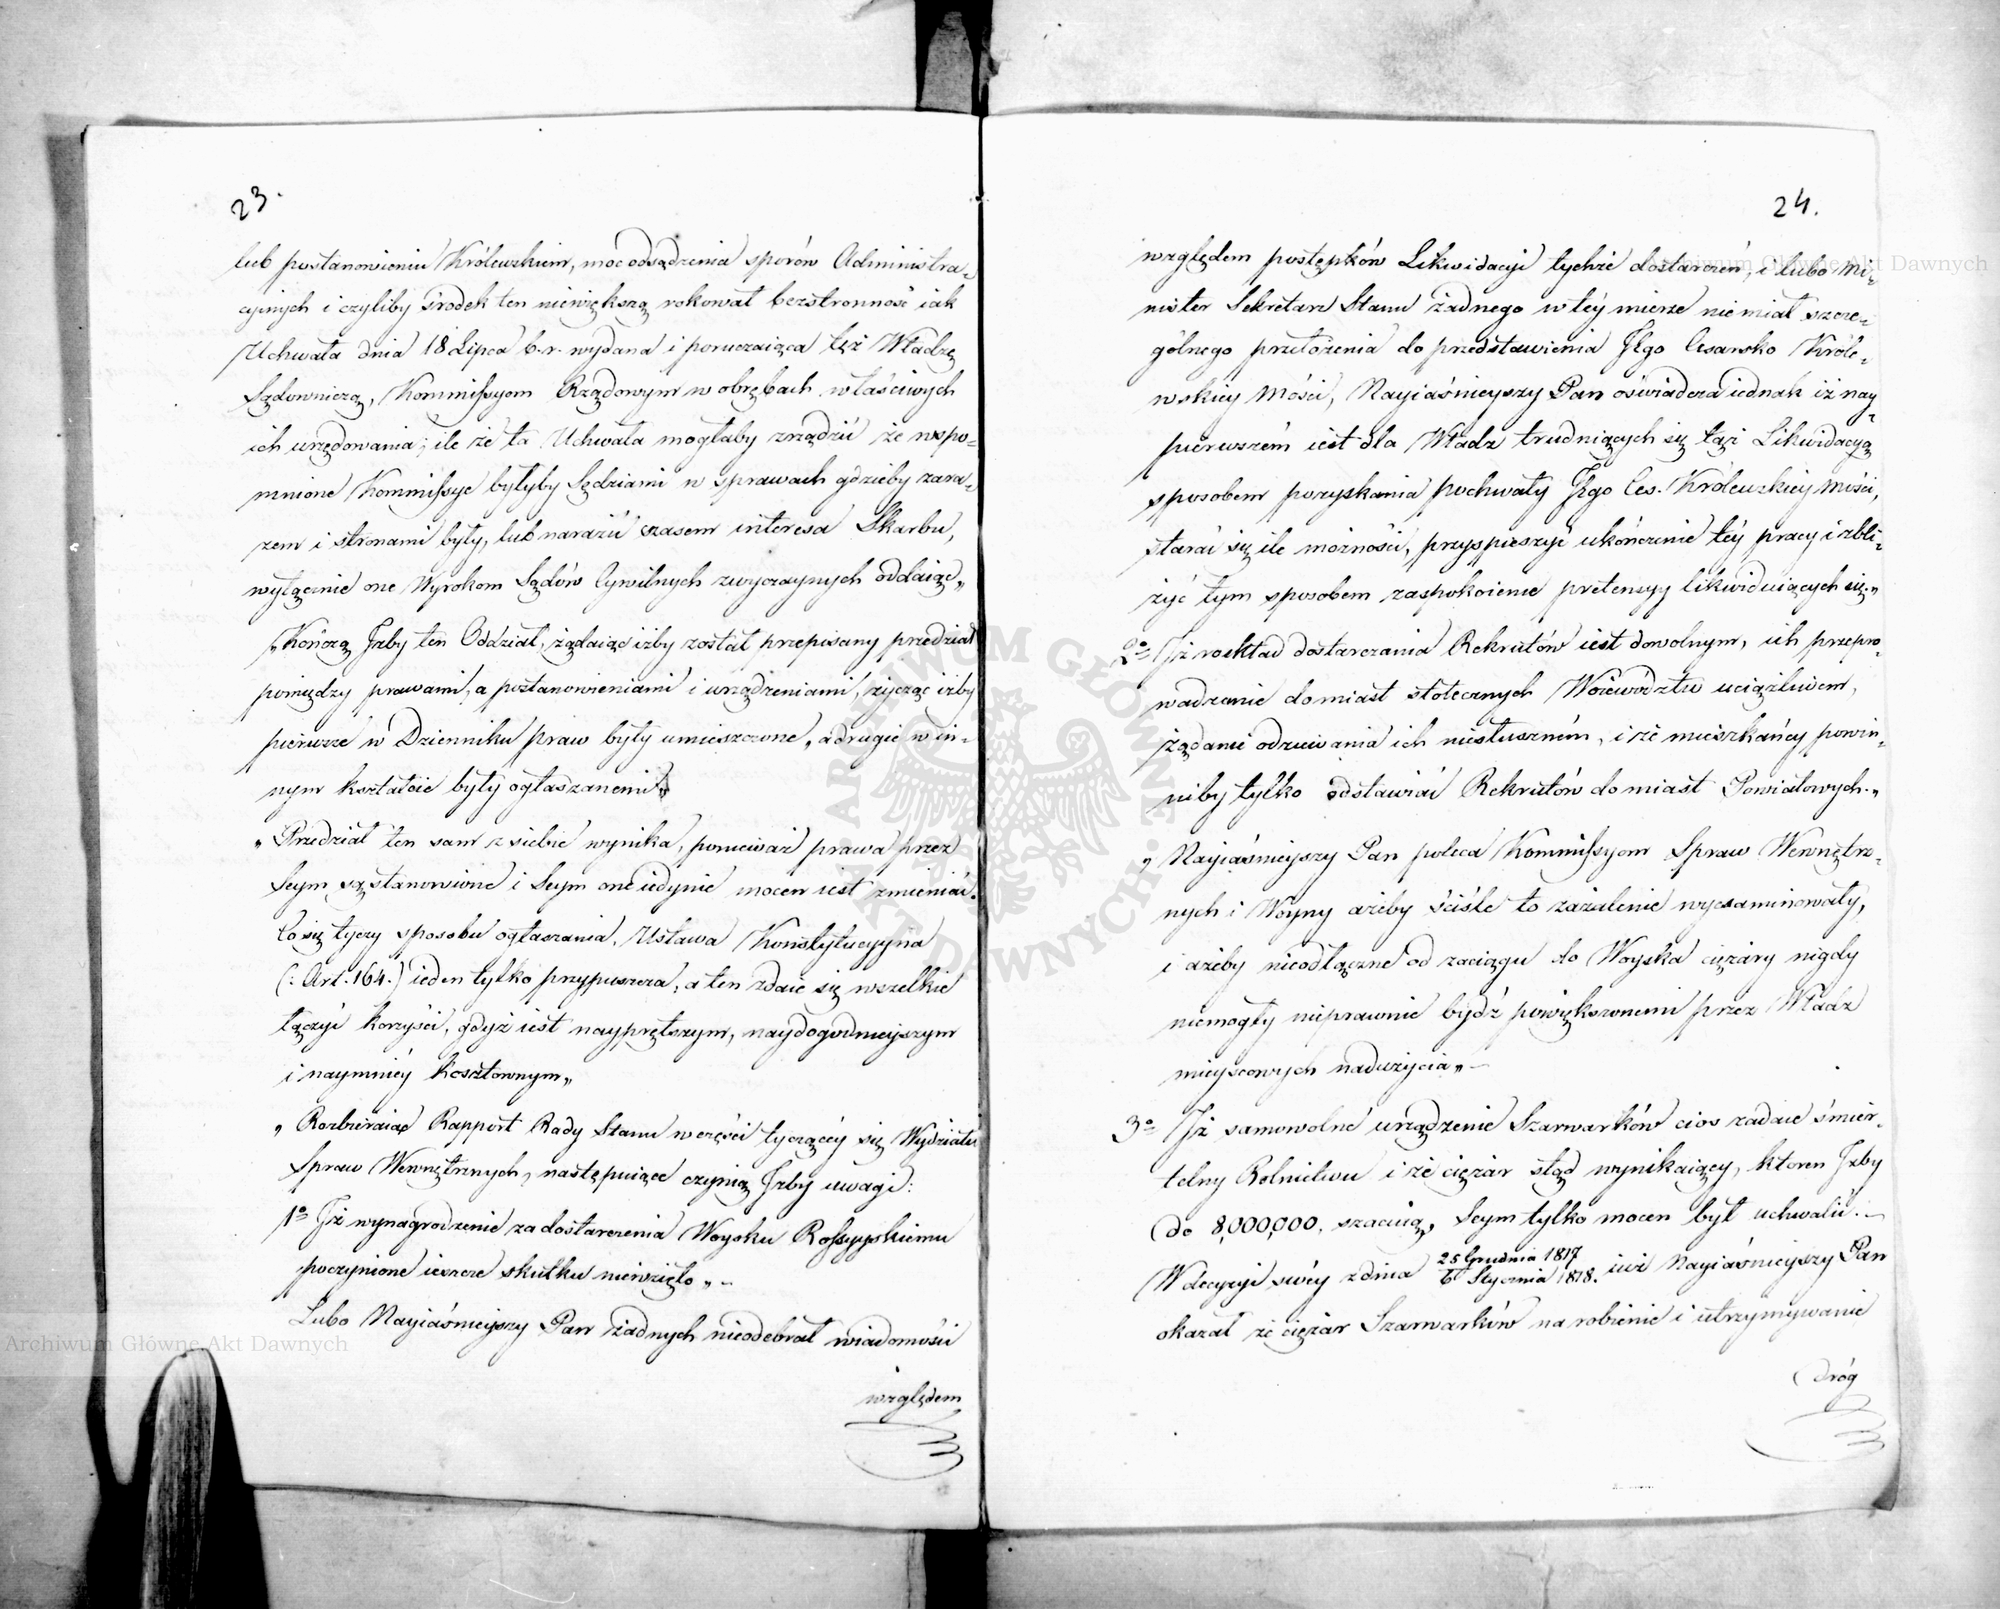 23.
lub postanowieniu Królewskiem, moc odsądzenia sporów Administra-
cyinych i czyliby środek ten niewiększą rokował bezstronność iak
Uchwała dnia 18 Lipca b.r. wydana i poruczaiąca tęż Władzę
Sądowniczą, Kommissyom Rządowym w obrębach właściwych
ich urzędowania; ile że ta Uchwała mogłaby zrządzić że wspo-
mnione Kommissye byłyby Sędziami w sprawach gdzieby zara-
zem i stronami były, lub narazić czasem interesa Skarbu,
wyłącznie one Wyrokom Sądów Cywilnych zwyczaynych oddaiąc„
„Kończą Izby ten Oddział, żądaiąc iżby został przepisany przedział
pomiędzy prawami, a postanowieniami i urządzeniami, życząc iżby
pierwsze w Dzienniku praw były umieszczone, a drugie w in-
nym kształcie były ogłaszanemi„
„Przedział ten sam z siebie wynika, ponieważ prawa przez
Seym są stanowione i Seym one iedynie mocen iest zmieniać.
Co się tyczy sposobu ogłaszania, Ustawa Konstytucyyna
(: Art. 164.) ieden tylko przypuszcza, a ten zdaie się wszelkie
łączyć korzyści, gdyż iest nayprętszym, naydogodnieyszym
i naymniéy kosztownym„
„Rozbieraiąc Rapport Rady Stanu w części tyczącéy się Wydziału
Spraw Wewnętrznych, następuiące czynią Izby uwagi:
1º Iż wynagrodzenie za dostarczenia Woysku Rossyyskiemu
poczynione ieszcze skutku niewzięło„ —
Lubo Nayiaśnieyszy Pan żadnych nieodebrał wiadomości
względem
24.
względem postępków Likwidacyi tychże dostarczeń, i lubo Mi-
nister Sekretarz Stanu żadnego w téy mierze nie miał szcze-
gólnego przełożenia do przedstawienia Jego Cesarsko Króle-
wskiey Mości, Nayiaśnieyszy Pan oświadcza iednak iż nay-
pierwszém iest dla Władz trudniących się tąż Likwidacyą
sposobem pozyskania pochwały Jego Ces. Królewskiey Mości,
starać się ile możności, przyspieszyć ukończenie téy pracy i zbli-
żyć tym sposobem zaspokoienie pretensyy likwiduiących się„
2º Iż rozkład dostarczania Rekrutów iest dowolnym, ich przepro-
wadzanie do miast stołecznych Województw uciążliwem,
żądanie odziewania ich niesłuszném, i że mieszkańcy powin-
niby tylko odstawiać Rekrutów do miast Powiatowych.„
„Nayiaśnieyszy Pan poleca Kommissyom Spraw Wewnętrz-
nych i Woyny ażeby ściśle to zażalenie wyexaminowały,
i ażeby nieodłączne od zaciągu do Woyska ciężary nigdy
niemogły nieprawnie bydź powiększonemi przez Władz
mieyscowych nadużycia„ —
3º Iż samowolné urządzenie Szarwarków cios zadaie śmier-
telny Rolnictwu i że ciężar stąd wynikaiący, któren Izby
do 8,000,000. szacuią, Seym tylko mocen był uchwalić. —
W decyzyi swéy z dnia 25 Grudnia 1817 / 6 Stycznia 1818. iuż Nayiaśnieyszy Pan
okazał że ciężar Szarwarków na robienie i utrzymywanie
dróg
Archiwum Główne Akt Dawnych
Archiwum Główne Akt Dawnych
ARCHIWUM GŁÓWNE AKT DAWNYCH